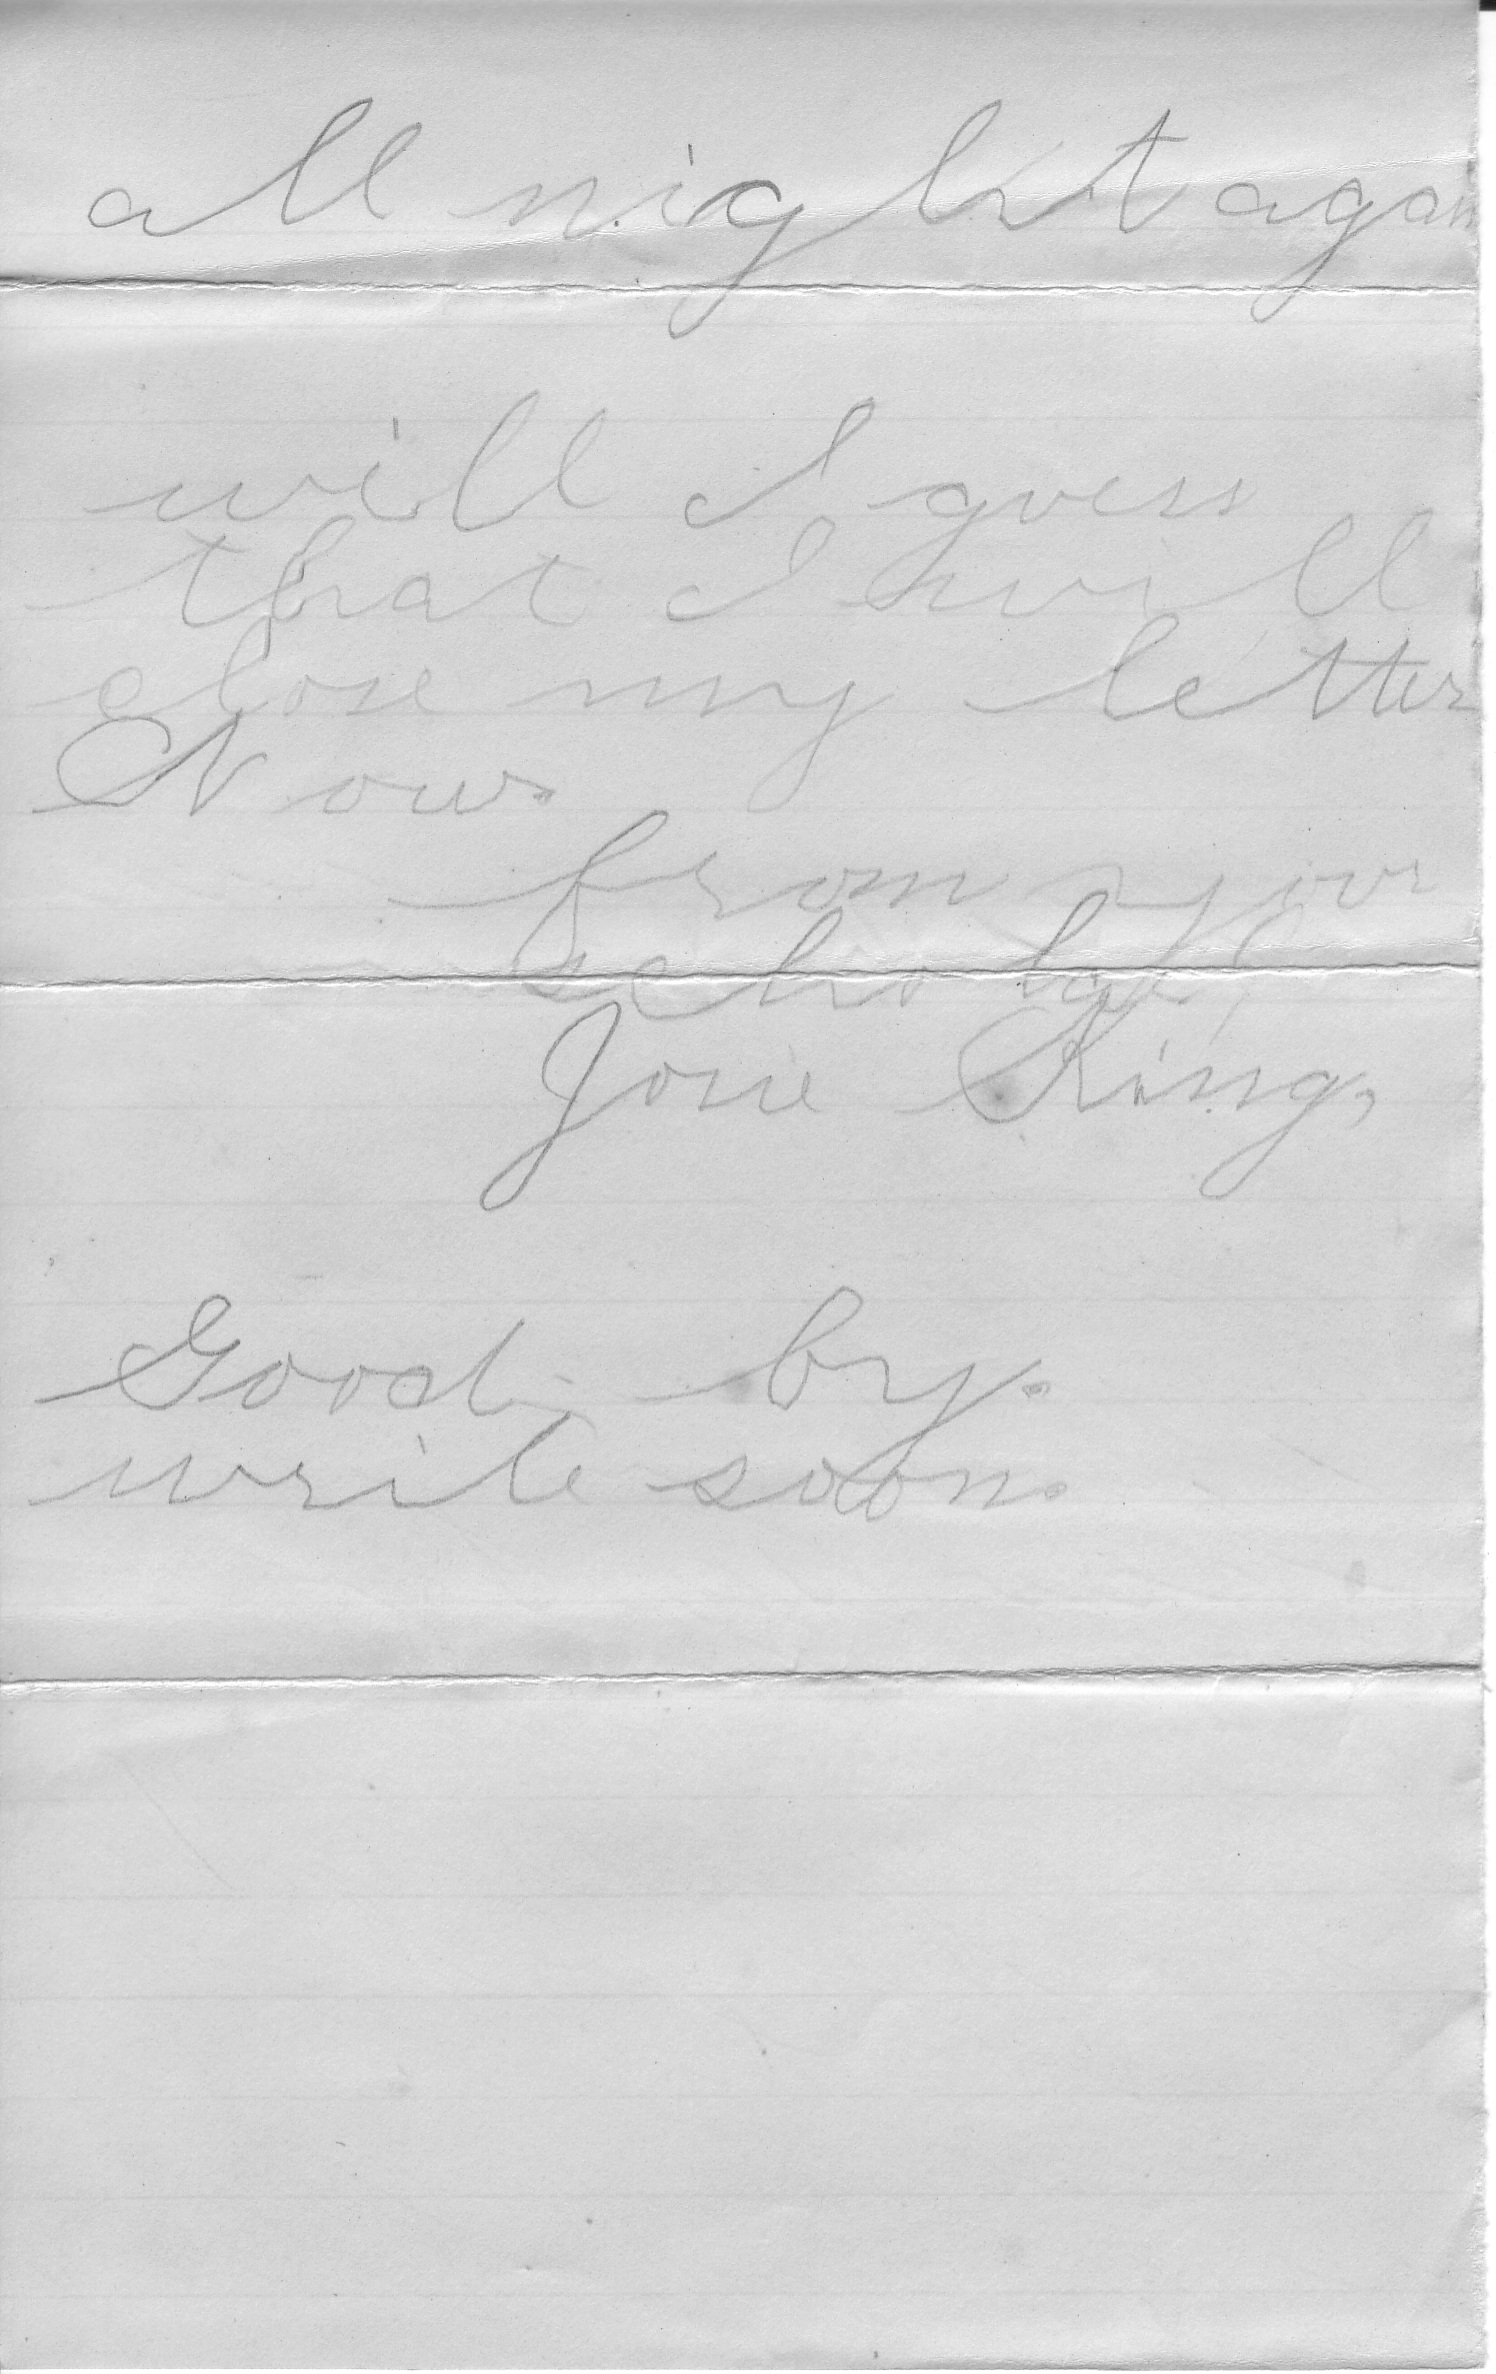 all night again
will I guess
that I will
close my letter
Now.
from your
scholar,
Josie King,
Good by.
write soon.